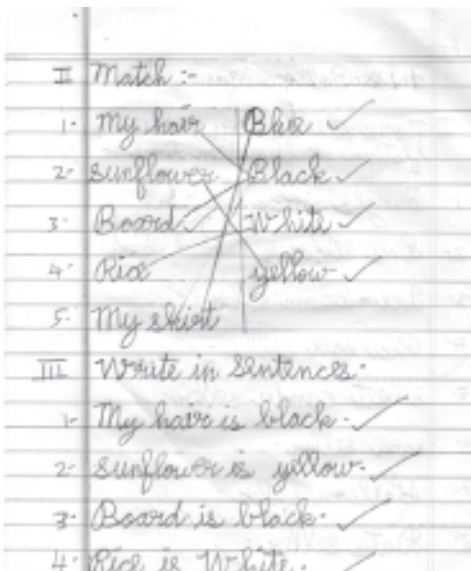 II Match :-
1. My hair Blue
2. Sunflower Black
3. Board White
4. Rice yellow
5. My skirt
III Write in Sentences.
1. My hair is black.
2. Sunflower is yellow.
3. Board is black.
4. Rice is White.